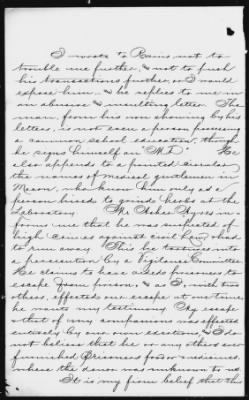 I wrote to Rains not to
trouble me further, & not to push
his transactions further, or I would
expose him — & he replies to me in
an abusive & insulting letter. The
man, from his own showing by his
letters, is not even a person possessing
a common school education, though
he signs himself an "M.D." He
also appends to a printed circular
the names of medical gentlemen in
Macon, who knew him only as a
person hired to grind herbs at the
Laboratory. Mr Asher Ayres in-
forms me that he was suspected of
high crimes against civil law, & had
to run away. This he tortures into
a persecution by a Vigilance Committee.
He claims to have aided prisoners to
escape from prison, & as I, with two
others, effected our escape at one time,
he wants my testimony. My escape
& that of my companions was effected
entirely by our own exertions, & I do
not believe that he or any others ever
furnished Prisoners food or medicines,
where the donor was unknown to us.
It is my firm belief that this